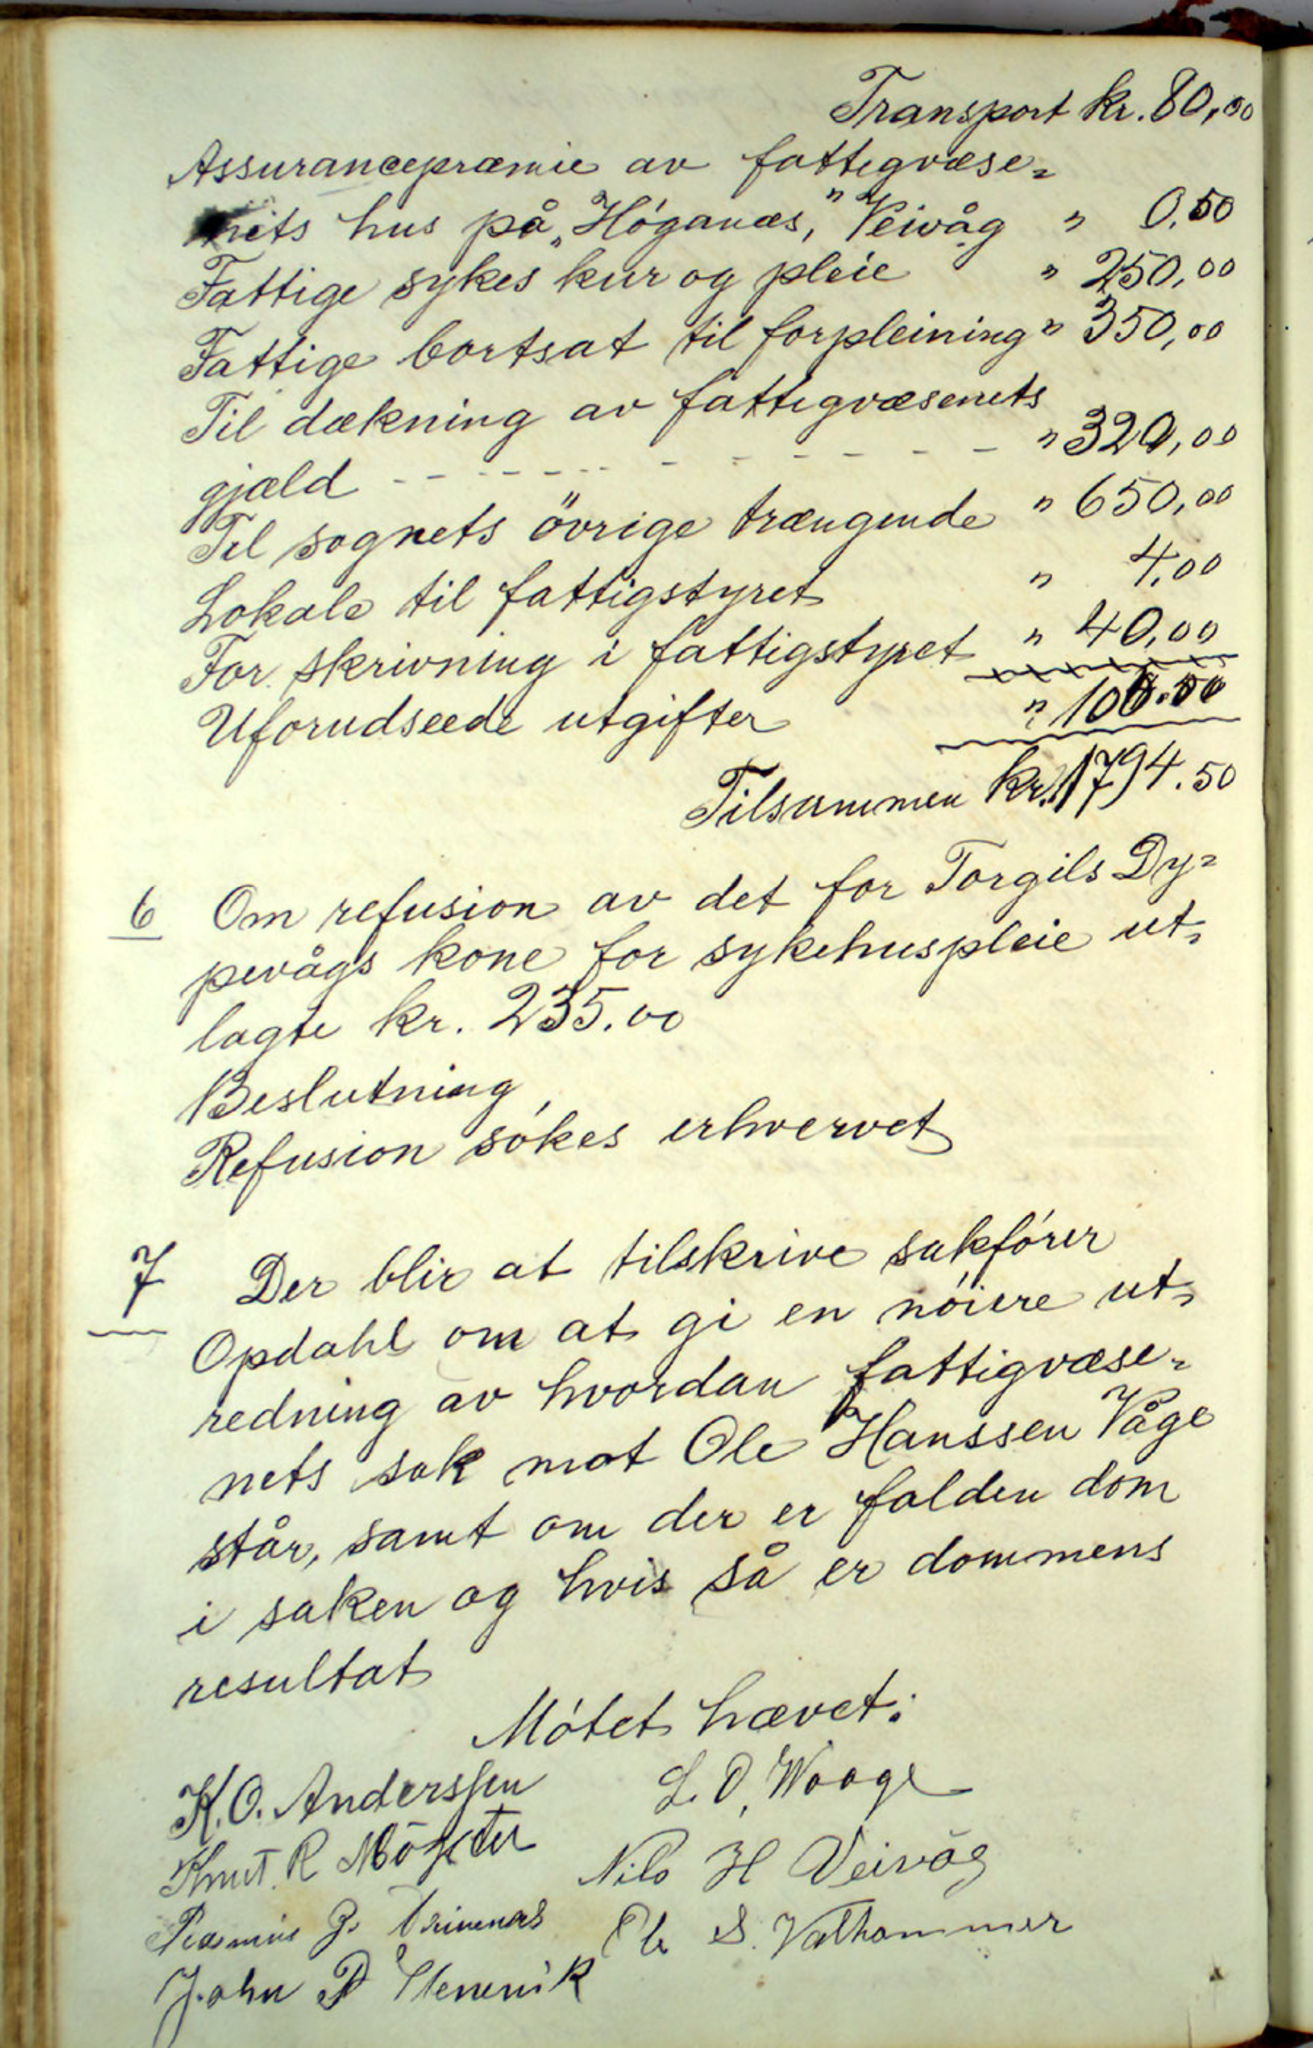 Transport kr. 80,00
Assurancepræmie av fattigvæse=
nets hus på „Høganæs," Veivåg " 0.50
Fattige sykes kur og pleie " 250,00
Fattige bortsat til forpleining " 350,00
Til dækning av fattigvæsenets
gjæld - - - - - - - - - - - " 320,00
Til sognets övrige trængende " 650,00
Lokale til fattigstyret " 4,00
For skrivning i fattigstyret " 40,00
Uforudseede utgifter " 100.00
Tilsammen kr. 1794.50
6 Om refusion av det for Torgils Dy=
pevågs kone for sykehuspleie ut=
lagte kr. 235.00
Beslutning,
Refusion søkes erhvervet
7 Der blir at tilskrive sakfører
Opdahl om at gi en nøiere ut=
redning av hvordan fattigvæse=
nets sak mot Ole Hanssen Våge
står, samt om der er falden dom
i saken og hvis så er dommens
resultat
Møtet hævet:
K. O. Anderssen L. O. Waage
Knut R Mögster Nils H Veivåg
Rasmus J. Ole S. Valhammer
John P Stenevik